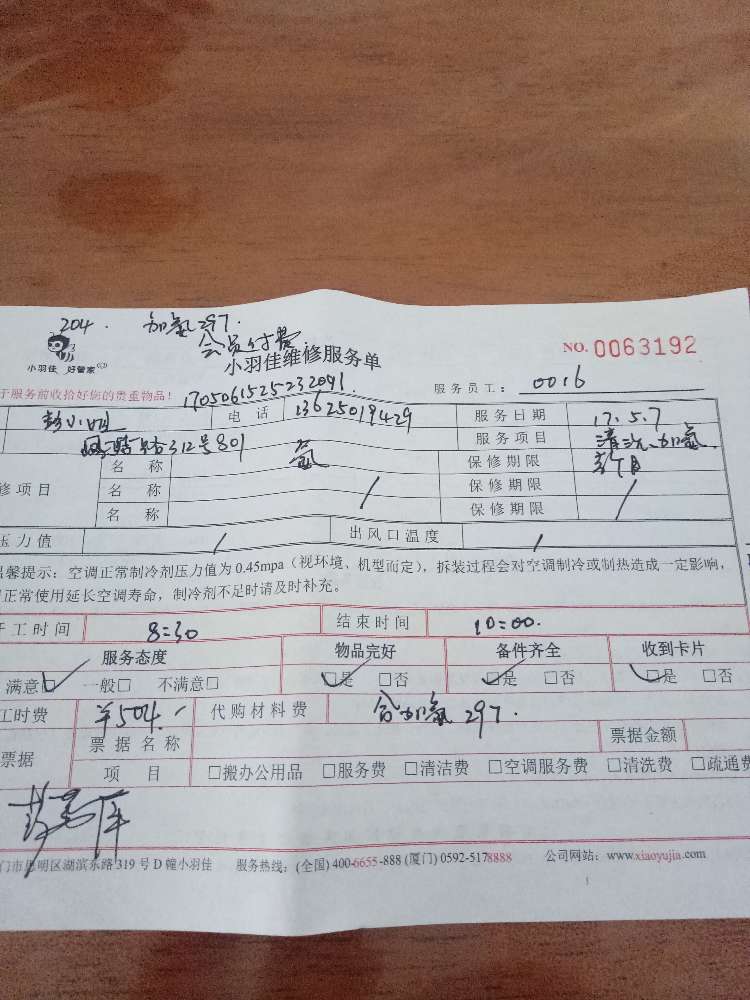 204. 加氟297.
会员付费
小羽佳 好管家
小羽佳维修服务单
NO. 0063192
于服务前收拾好您的贵重物品!
1705061525232091.
服务员工: 0016
小姐 电话 13625019429 服务日期 17.5.7
312号801 服务项目 清洗、加氟
名称 氟 保修期限
修项目 名称 / 保修期限 /
名称 保修期限
压力值 / 出风口温度 /
温馨提示: 空调正常制冷剂压力值为 0.45mpa (视环境、机型而定), 拆装过程会对空调制冷或制热造成一定影响,
正常使用延长空调寿命, 制冷剂不足时请及时补充。
开工时间 8:30 结束时间 10:00.
服务态度 物品完好 备件齐全 收到卡片
满意☑ 一般□ 不满意□ ☑是 □否 ☑是 □否 ☑是 □否
工时费 ¥504. 代购材料费 含加氟 297.
票据 票据名称 票据金额
项目 □搬办公用品 □服务费 □清洁费 □空调服务费 □清洗费 □疏通费
门市思明区湖滨东路 319 号 D 幢小羽佳 服务热线: (全国) 400-6655-888 (厦门) 0592-5178888 公司网站: www.xiaoyujia.com